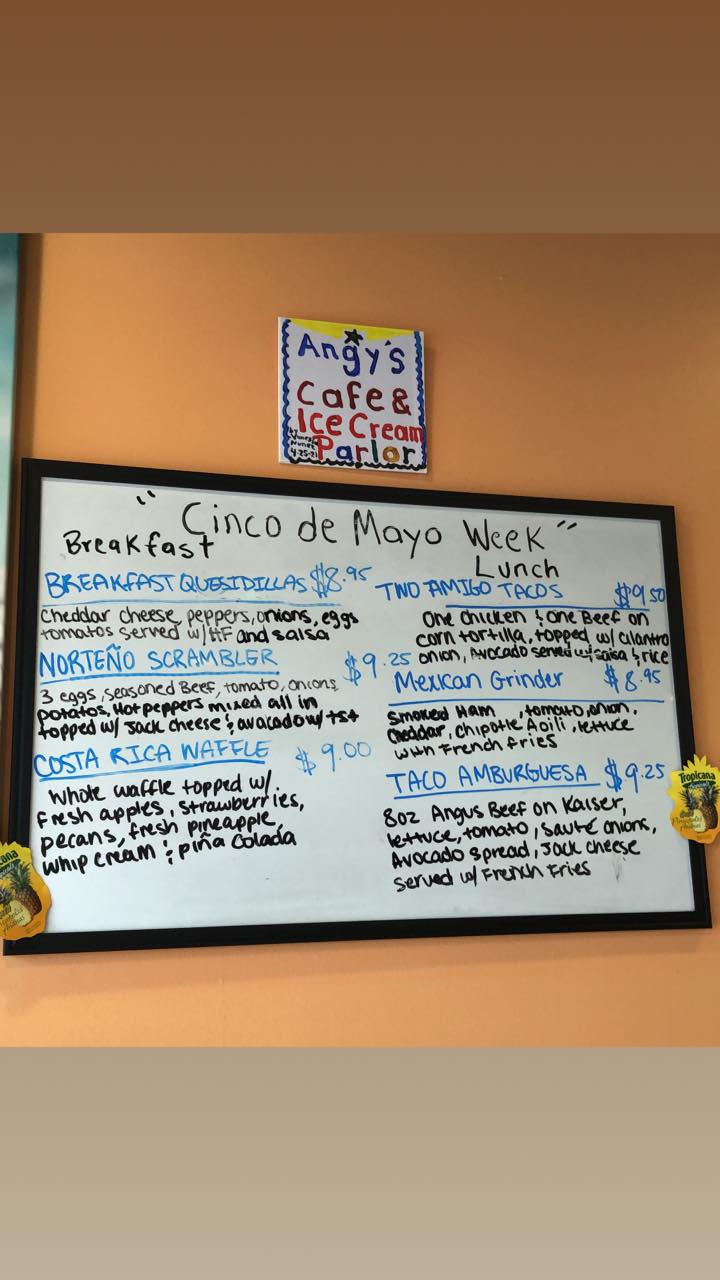 Angy's
Cafe &
Ice Cream
Parlor
4·25·21
"Cinco de Mayo Week"
Breakfast
BREAKFAST QUESIDILLAS $8.95
Cheddar cheese, peppers, onions, eggs
tomatos served w/ HF and salsa
NORTEÑO SCRAMBLER $9.25
3 eggs, seasoned Beef, tomato, onions
potatos, Hot peppers mixed all in
topped w/ Jack cheese & avacado w/ TST
COSTA RICA WAFFLE $9.00
Whole waffle topped w/
fresh apples, strawberries,
pecans, fresh pineapple,
whip cream & piña Colada
Lunch
TWO AMIGO TACOS $9.50
One chicken & One Beef on
corn tortilla, topped w/ cilantro
onion, Avocado served w/ salsa & rice
Mexican Grinder $8.95
Smoked Ham , tomato, onion,
Cheddar, chipotle Aoili, lettuce
with French Fries
TACO AMBURGUESA $9.25
8oz Angus Beef on Kaiser,
lettuce, tomato, sauté onions,
Avocado Spread, Jack cheese
served w/ French Fries
Tropicana